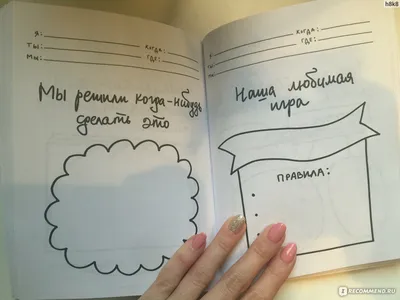 h8k8
Я:
Ты:
Мы:
Когда:
Где:
Мы решили когда-нибудь
сделать это
Я:
Ты:
Мы:
Когда:
Где:
Наша любимая
игра
Правила:
IRECOMMEND.RU